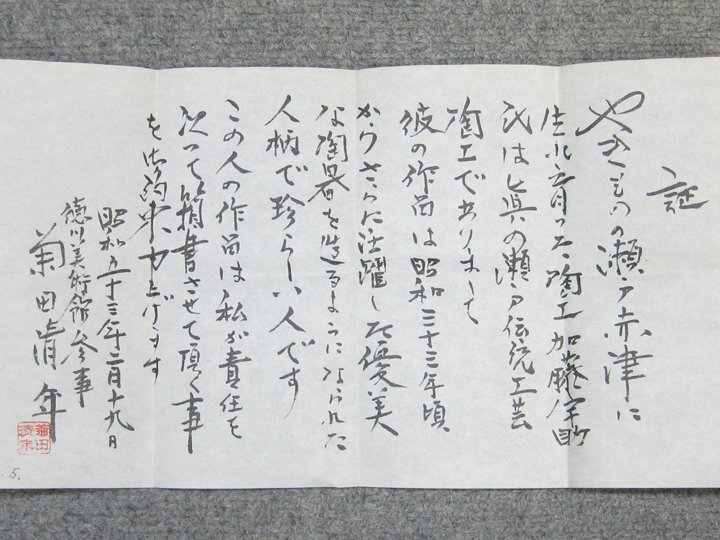 証
やきものの瀬戸赤津に
生れ育った陶工加藤宇助
氏は眞の瀬戸伝統工芸
陶工でありまして
彼の作品は昭和三十三年頃
からさらに活躍した優美
な陶器を造るようになられた
人柄で珍らしい人です
この人の作品は私が責任を
以って箱書させて頂く事
を御約束申上げます
昭和五十三年二月十九日
徳川美術館参事
菊田清年
.5.